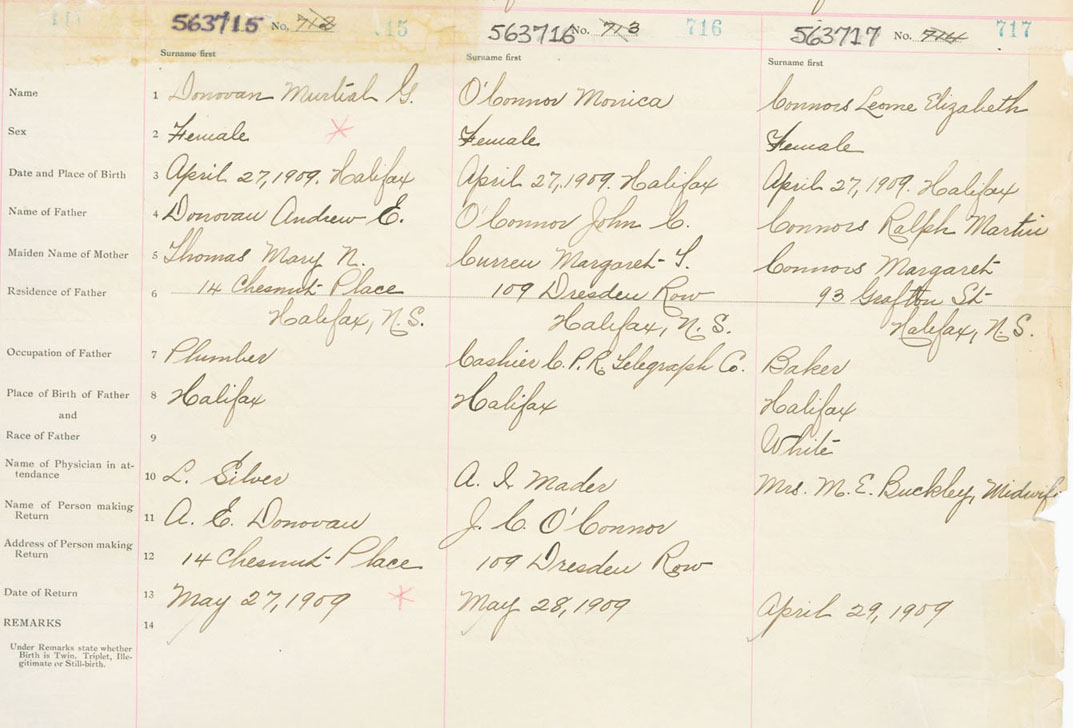 563715 No. 712 15 563716 No. 713 716 563717 No. 714 717
Surname first Surname first Surname first
Name 1 Donovan Murtial G. O'Connor Monica Connors Leome Elizabeth
Sex 2 Female Female Female
Date and Place of Birth 3 April 27, 1909. Halifax April 27, 1909. Halifax April 27, 1909. Halifax
Name of Father 4 Donovan Andrew E. O'Connor John C. Connors Ralph Martin
Maiden Name of Mother 5 Thomas Mary N. Curren Margaret T. Connors Margaret
Residence of Father 6 14 Chesnut Place 109 Dresden Row 93 Grafton St
Halifax, N.S. Halifax, N.S. Halifax, N.S.
Occupation of Father 7 Plumber Cashier C.P.R. Telegraph Co. Baker
Place of Birth of Father 8 Halifax Halifax Halifax
and
Race of Father 9 White
Name of Physician in at-
tendance 10 L. Silver A. I. Mader Mrs. M. E. Buckley, Midwife
Name of Person making
Return 11 A. E. Donovan J. C. O'Connor
Address of Person making
Return 12 14 Chesnut Place 109 Dresden Row
Date of Return 13 May 27, 1909 May 28, 1909 April 29, 1909
REMARKS 14
Under Remarks state whether
Birth is Twin, Triplet, Ille-
gitimate or Still-birth.